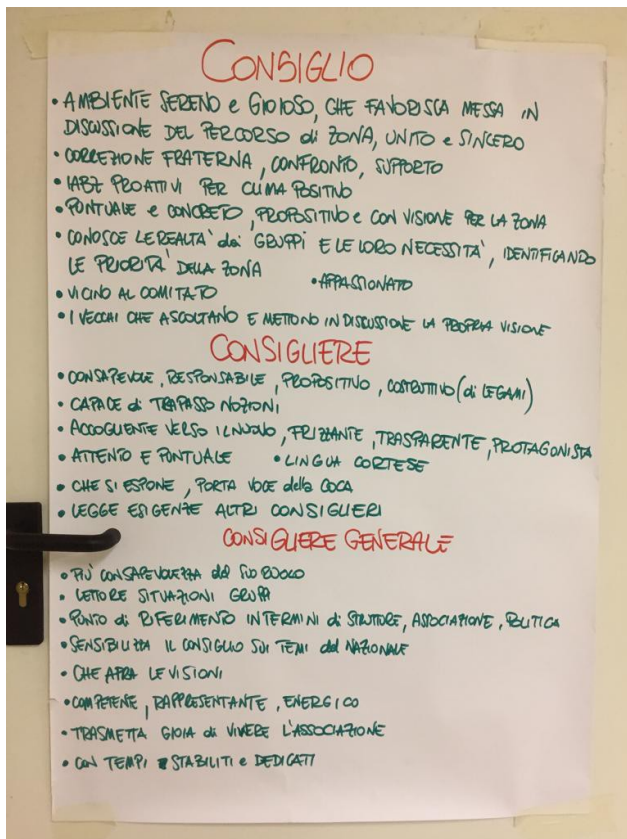 CONSIGLIO
• AMBIENTE SERENO e GIOIOSO, CHE FAVORISCA MESSA IN
DISCUSSIONE DEL PERCORSO di ZONA, UNITO e SINCERO
• CORREZIONE FRATERNA, CONFRONTO, SUPPORTO
• IABZ PROATTIVI PER CLIMA POSITIVO
• PUNTUALE e CONCRETO, PROPOSITIVO e CON VISIONE PER LA ZONA
• CONOSCE LE REALTA' dei GRUPPI E LE LORO NECESSITA', IDENTIFICANDO
LE PRIORITA' DELLA ZONA • APPASSIONATO
• VICINO AL COMITATO
• I VECCHI CHE ASCOLTANO E METTONO IN DISCUSSIONE LA PROPRIA VISIONE
CONSIGLIERE
• CONSAPEVOLE, RESPONSABILE, PROPOSITIVO, COSTRUTTIVO (di LEGAMI)
• CAPACE di TRAPASSO NOZIONI
• ACCOGLIENTE VERSO IL NUOVO, FRIZZANTE, TRASPARENTE, PROTAGONISTA
• ATTENTO E PUNTUALE • LINGUA CORTESE
• CHE SI ESPONE, PORTA VOCE della COCA
• LEGGE ESIGENZE ALTRI CONSIGLIERI
CONSIGLIERE GENERALE
• PIÙ CONSAPEVOLEZZA del SUO RUOLO
• LETTORE SITUAZIONI GRUPPI
• PUNTO di RIFERIMENTO IN TERMINI di STRUTTURE, ASSOCIAZIONE, POLITICA
• SENSIBILIZZA IL CONSIGLIO SUI TEMI del NAZIONALE
• CHE APRA LE VISIONI
• COMPETENTE, RAPPRESENTANTE, ENERGICO
• TRASMETTA GIOIA di VIVERE L'ASSOCIAZIONE
• CON TEMPI STABILITI e DEDICATI